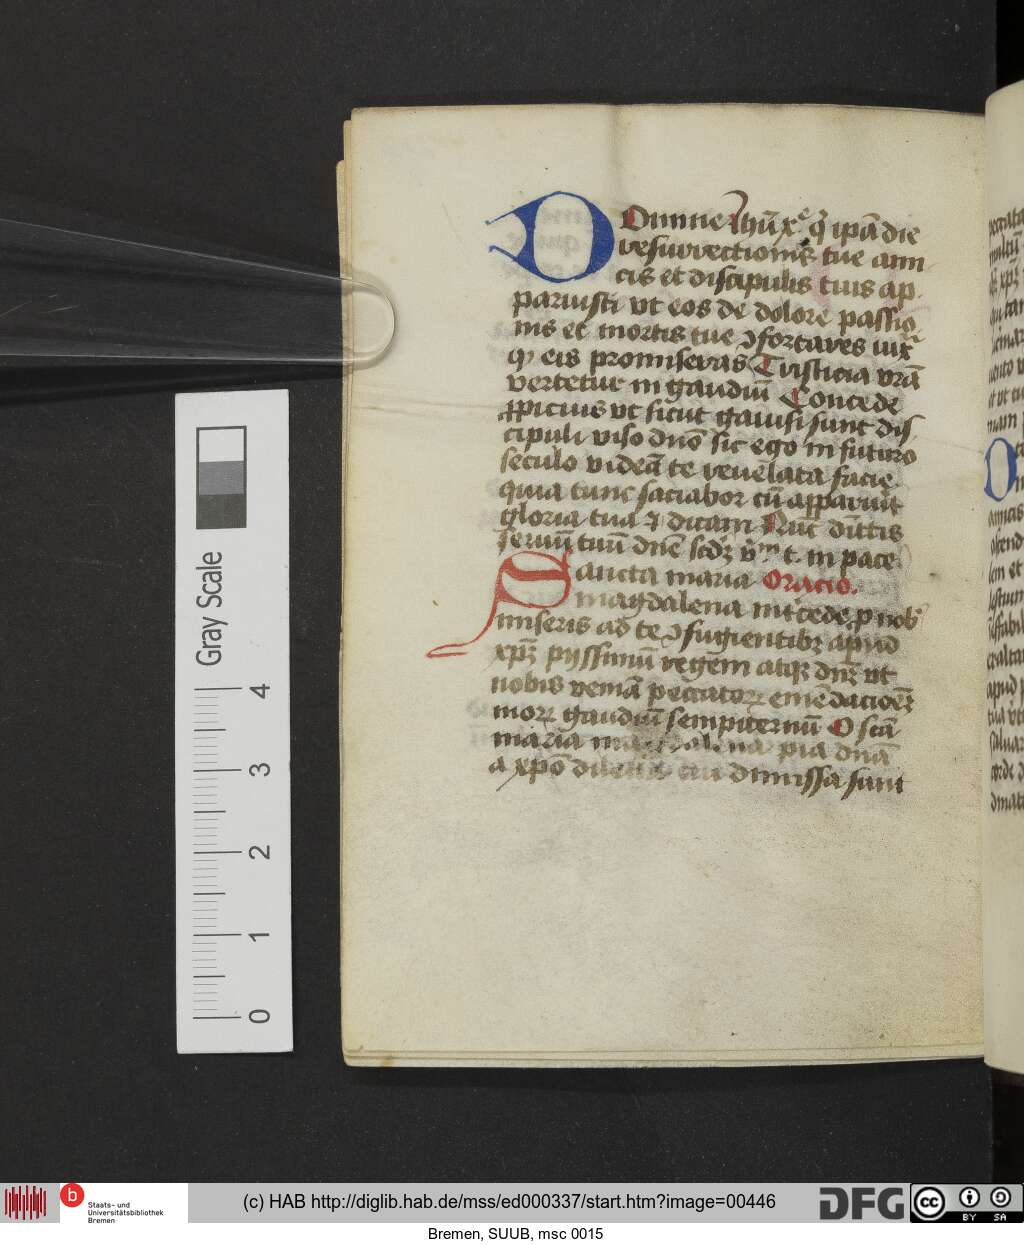 DOmine Ihū xp̄e q̇ ipā die
resurrectionis tue ami
cis et discipulis tuis ap
paruisti vt eos de dolore passio
nis et mortis tue ꝯfortares iux
qͥ eis promiseras Tristicia vrā
vertetur in gaudiū Concede
ꝓpicius vt sicut gauisi sunt dis
cipuli viso dn̄o sic ego in futuro
seculo videā te reuelata facie
quia tunc saciabor cū apparuīt
gloria tua ⁊ dicam Nūc dīttis
seruū tuū dn̄e scdꝫ v̄ᵐ t. in pace
Sancta maria Oracio.
magdalena int̄cede ꝓ nob̾
miseris ad te ꝯfugientibꝫ apud
xp̄ꝫ pijssimū regem atqꝫ dn̄ꝫ vt
nobis veniā peccatoꝝ emēdacioēꝫ
moꝝ gaudiū sempiternū O scā
maria magdalena pia dn̄a
a xp̄o dilecta cui dimissa sunt
Gray Scale
4
3
2
1
0
b
Staats- und
Universitätsbibliothek
Bremen
(c) HAB http://diglib.hab.de/mss/ed000337/start.htm?image=00446
DFG
cc
BY SA
Bremen, SUUB, msc 0015